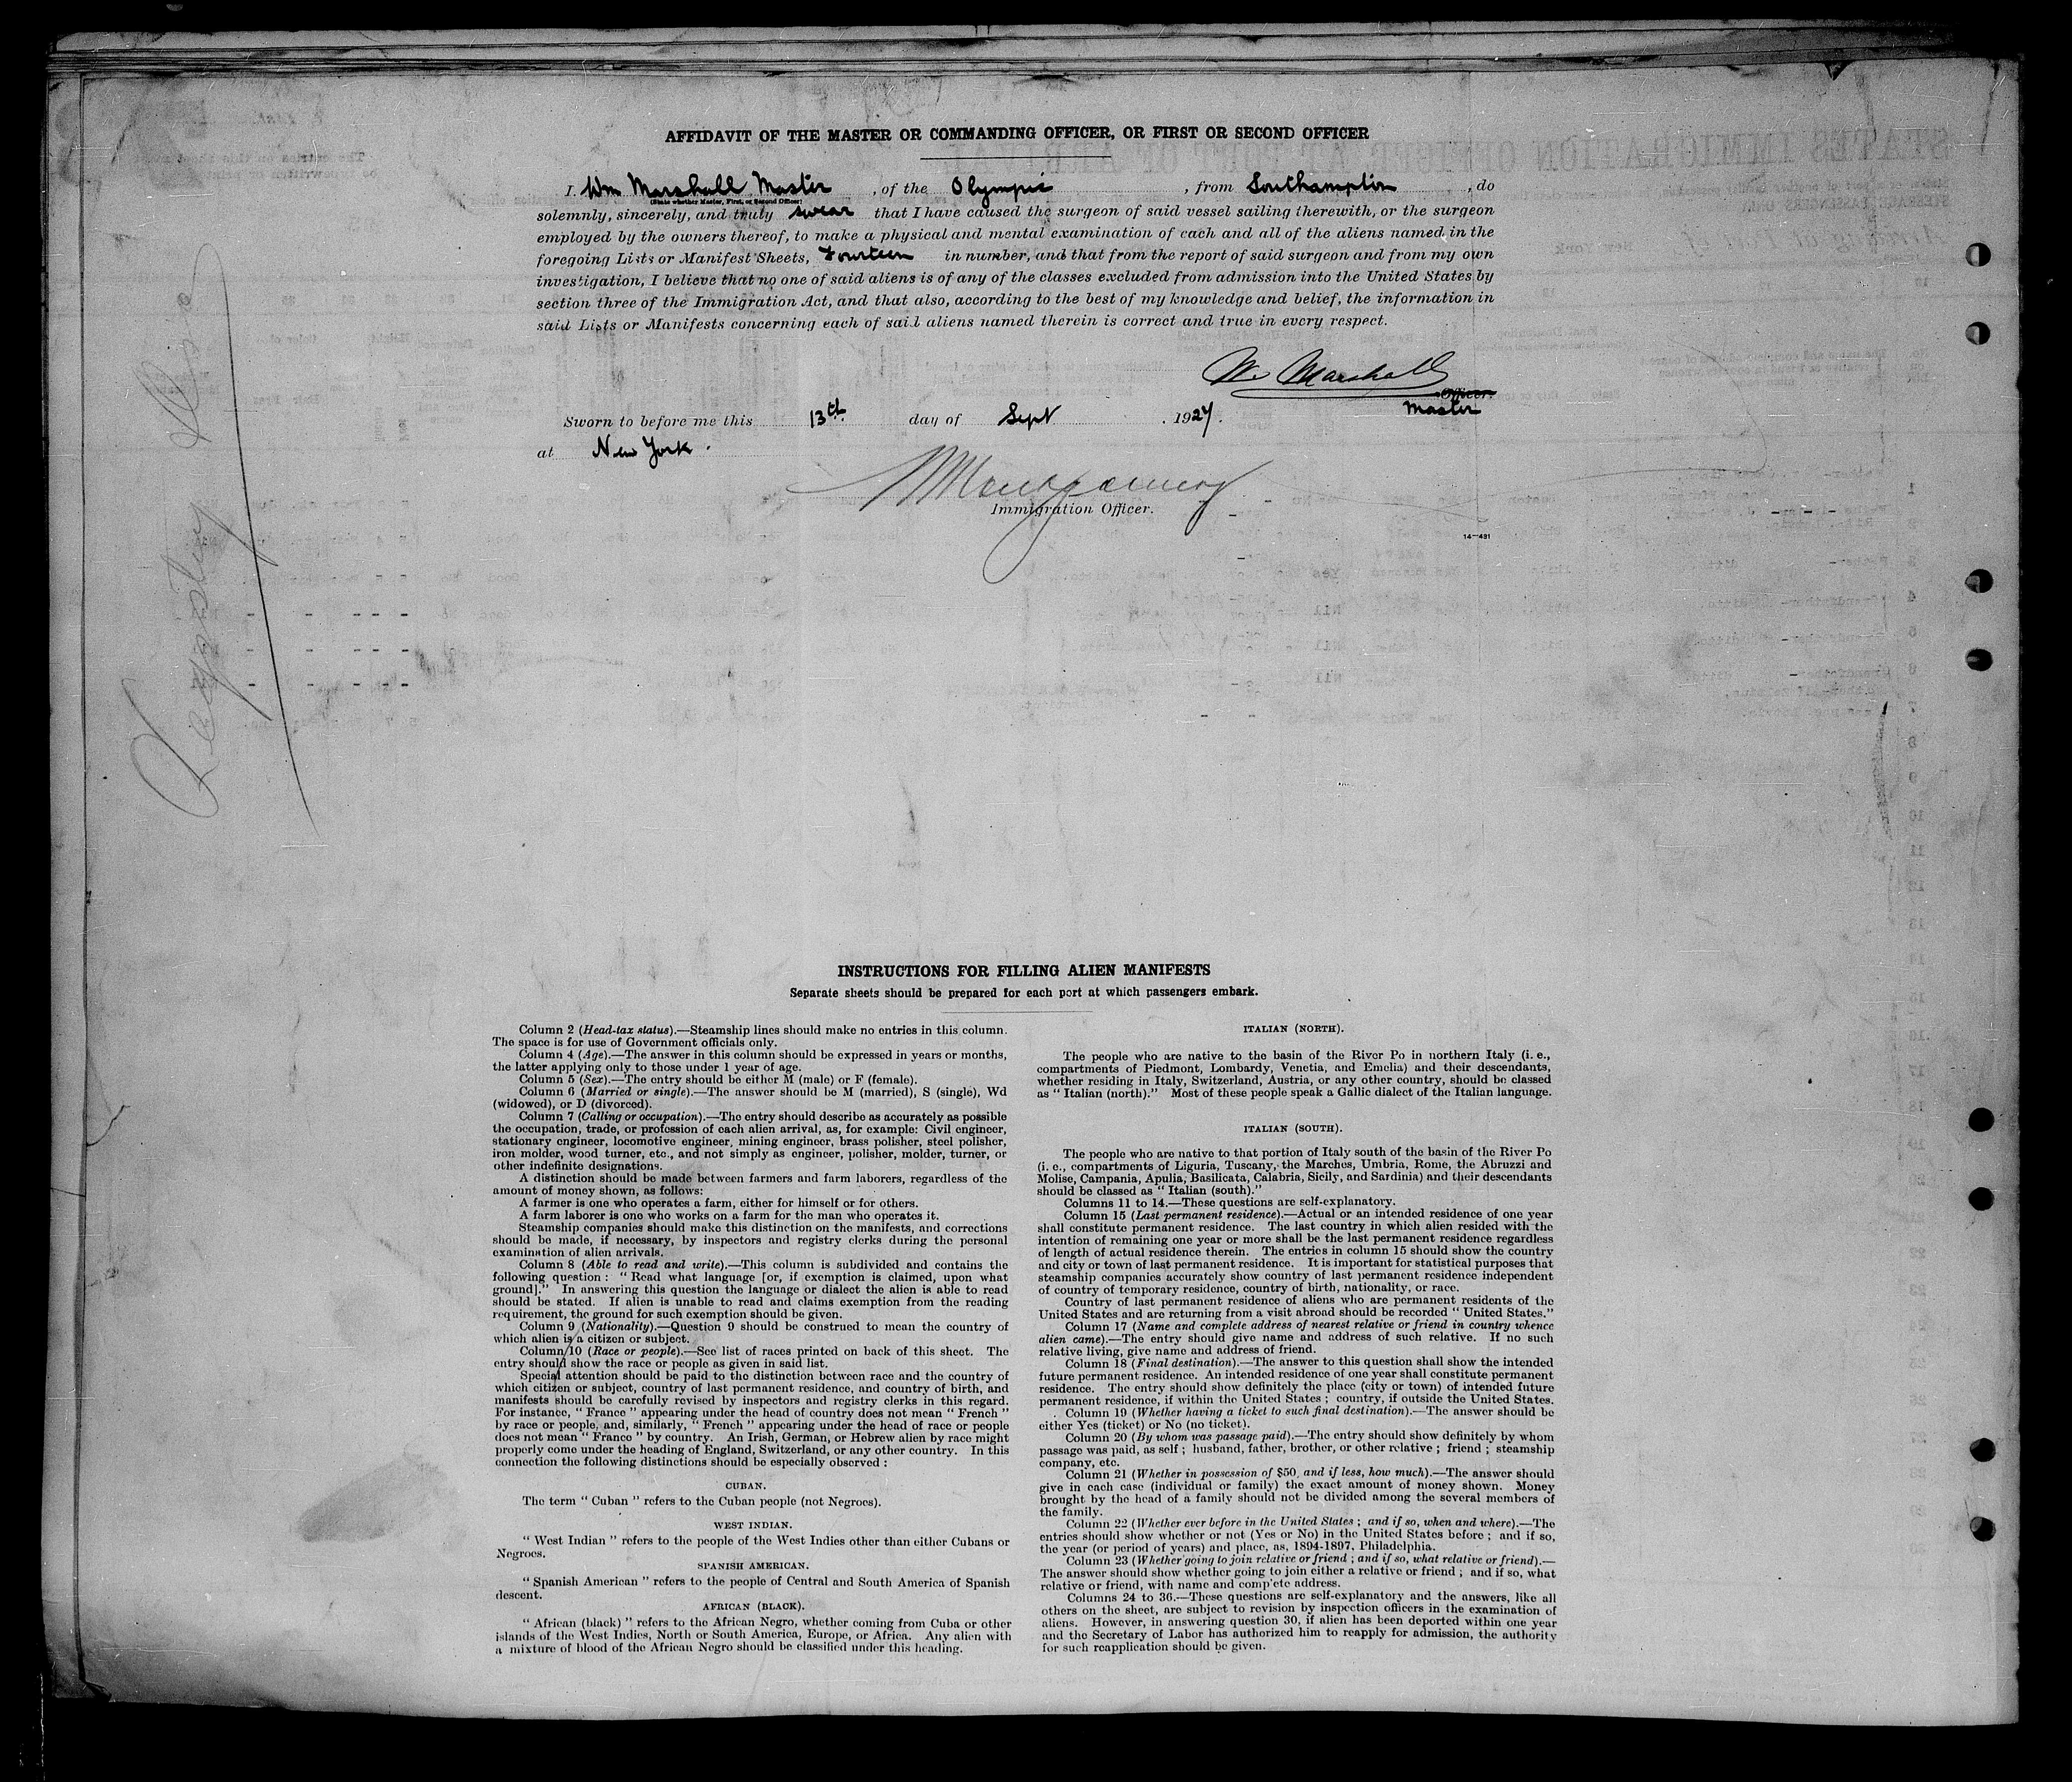 AFFIDAVIT OF THE MASTER OR COMMANDING OFFICER, OR FIRST OR SECOND OFFICER
I, Wm Marshall Master , of the Olympic , from Southampton , do
(State whether Master, First, or Second Officer)
solemnly, sincerely, and truly swear that I have caused the surgeon of said vessel sailing therewith, or the surgeon
employed by the owners thereof, to make a physical and mental examination of each and all of the aliens named in the
foregoing Lists or Manifest Sheets, Fourteen in number, and that from the report of said surgeon and from my own
investigation, I believe that no one of said aliens is of any of the classes excluded from admission into the United States by
section three of the Immigration Act, and that also, according to the best of my knowledge and belief, the information in
said Lists or Manifests concerning each of said aliens named therein is correct and true in every respect.
W. Marshall
Officer.
Master
Sworn to before me this 13th day of Sept , 1927.
at New York.
Immigration Officer.
14—481
INSTRUCTIONS FOR FILLING ALIEN MANIFESTS
Separate sheets should be prepared for each port at which passengers embark.
Column 2 (Head-tax status).—Steamship lines should make no entries in this column.
The space is for use of Government officials only.
Column 4 (Age).—The answer in this column should be expressed in years or months,
the latter applying only to those under 1 year of age.
Column 5 (Sex).—The entry should be either M (male) or F (female).
Column 6 (Married or single).—The answer should be M (married), S (single), Wd
(widowed), or D (divorced).
Column 7 (Calling or occupation).—The entry should describe as accurately as possible
the occupation, trade, or profession of each alien arrival, as, for example: Civil engineer,
stationary engineer, locomotive engineer, mining engineer, brass polisher, steel polisher,
iron molder, wood turner, etc., and not simply as engineer, polisher, molder, turner, or
other indefinite designations.
A distinction should be made between farmers and farm laborers, regardless of the
amount of money shown, as follows:
A farmer is one who operates a farm, either for himself or for others.
A farm laborer is one who works on a farm for the man who operates it.
Steamship companies should make this distinction on the manifests, and corrections
should be made, if necessary, by inspectors and registry clerks during the personal
examination of alien arrivals.
Column 8 (Able to read and write).—This column is subdivided and contains the
following question : “ Read what language [or, if exemption is claimed, upon what
ground].” In answering this question the language or dialect the alien is able to read
should be stated. If alien is unable to read and claims exemption from the reading
requirement, the ground for such exemption should be given.
Column 9 (Nationality).—Question 9 should be construed to mean the country of
which alien is a citizen or subject.
Column 10 (Race or people).—See list of races printed on back of this sheet. The
entry should show the race or people as given in said list.
Special attention should be paid to the distinction between race and the country of
which citizen or subject, country of last permanent residence, and country of birth, and
manifests should be carefully revised by inspectors and registry clerks in this regard.
For instance, “ France ” appearing under the head of country does not mean “ French ”
by race or people, and, similarly, “ French ” appearing under the head of race or people
does not mean “ France ” by country. An Irish, German, or Hebrew alien by race might
properly come under the heading of England, Switzerland, or any other country. In this
connection the following distinctions should be especially observed :
CUBAN.
The term “ Cuban ” refers to the Cuban people (not Negroes).
WEST INDIAN.
“ West Indian ” refers to the people of the West Indies other than either Cubans or
Negroes.
SPANISH AMERICAN.
“ Spanish American ” refers to the people of Central and South America of Spanish
descent.
AFRICAN (BLACK).
“ African (black) ” refers to the African Negro, whether coming from Cuba or other
islands of the West Indies, North or South America, Europe, or Africa. Any alien with
a mixture of blood of the African Negro should be classified under this heading.
ITALIAN (NORTH).
The people who are native to the basin of the River Po in northern Italy (i. e.,
compartments of Piedmont, Lombardy, Venetia, and Emelia) and their descendants,
whether residing in Italy, Switzerland, Austria, or any other country, should be classed
as “ Italian (north).” Most of these people speak a Gallic dialect of the Italian language.
ITALIAN (SOUTH).
The people who are native to that portion of Italy south of the basin of the River Po
(i. e., compartments of Liguria, Tuscany, the Marches, Umbria, Rome, the Abruzzi and
Molise, Campania, Apulia, Basilicata, Calabria, Sicily, and Sardinia) and their descendants
should be classed as “ Italian (south).”
Columns 11 to 14.—These questions are self-explanatory.
Column 15 (Last permanent residence).—Actual or an intended residence of one year
shall constitute permanent residence. The last country in which alien resided with the
intention of remaining one year or more shall be the last permanent residence regardless
of length of actual residence therein. The entries in column 15 should show the country
and city or town of last permanent residence. It is important for statistical purposes that
steamship companies accurately show country of last permanent residence independent
of country of temporary residence, country of birth, nationality, or race.
Country of last permanent residence of aliens who are permanent residents of the
United States and are returning from a visit abroad should be recorded “ United States.”
Column 17 (Name and complete address of nearest relative or friend in country whence
alien came).—The entry should give name and address of such relative. If no such
relative living, give name and address of friend.
Column 18 (Final destination).—The answer to this question shall show the intended
future permanent residence. An intended residence of one year shall constitute permanent
residence. The entry should show definitely the place (city or town) of intended future
permanent residence, if within the United States ; country, if outside the United States.
Column 19 (Whether having a ticket to such final destination).—The answer should be
either Yes (ticket) or No (no ticket).
Column 20 (By whom was passage paid).—The entry should show definitely by whom
passage was paid, as self ; husband, father, brother, or other relative ; friend ; steamship
company, etc.
Column 21 (Whether in possession of $50, and if less, how much).—The answer should
give in each case (individual or family) the exact amount of money shown. Money
brought by the head of a family should not be divided among the several members of
the family.
Column 22 (Whether ever before in the United States ; and if so, when and where).—The
entries should show whether or not (Yes or No) in the United States before ; and if so,
the year (or period of years) and place, as, 1894-1897, Philadelphia.
Column 23 (Whether going to join relative or friend ; and if so, what relative or friend).—
The answer should show whether going to join either a relative or friend ; and if so, what
relative or friend, with name and complete address.
Columns 24 to 36.—These questions are self-explanatory and the answers, like all
others on the sheet, are subject to revision by inspection officers in the examination of
aliens. However, in answering question 30, if alien has been deported within one year
and the Secretary of Labor has authorized him to reapply for admission, the authority
for such reapplication should be given.